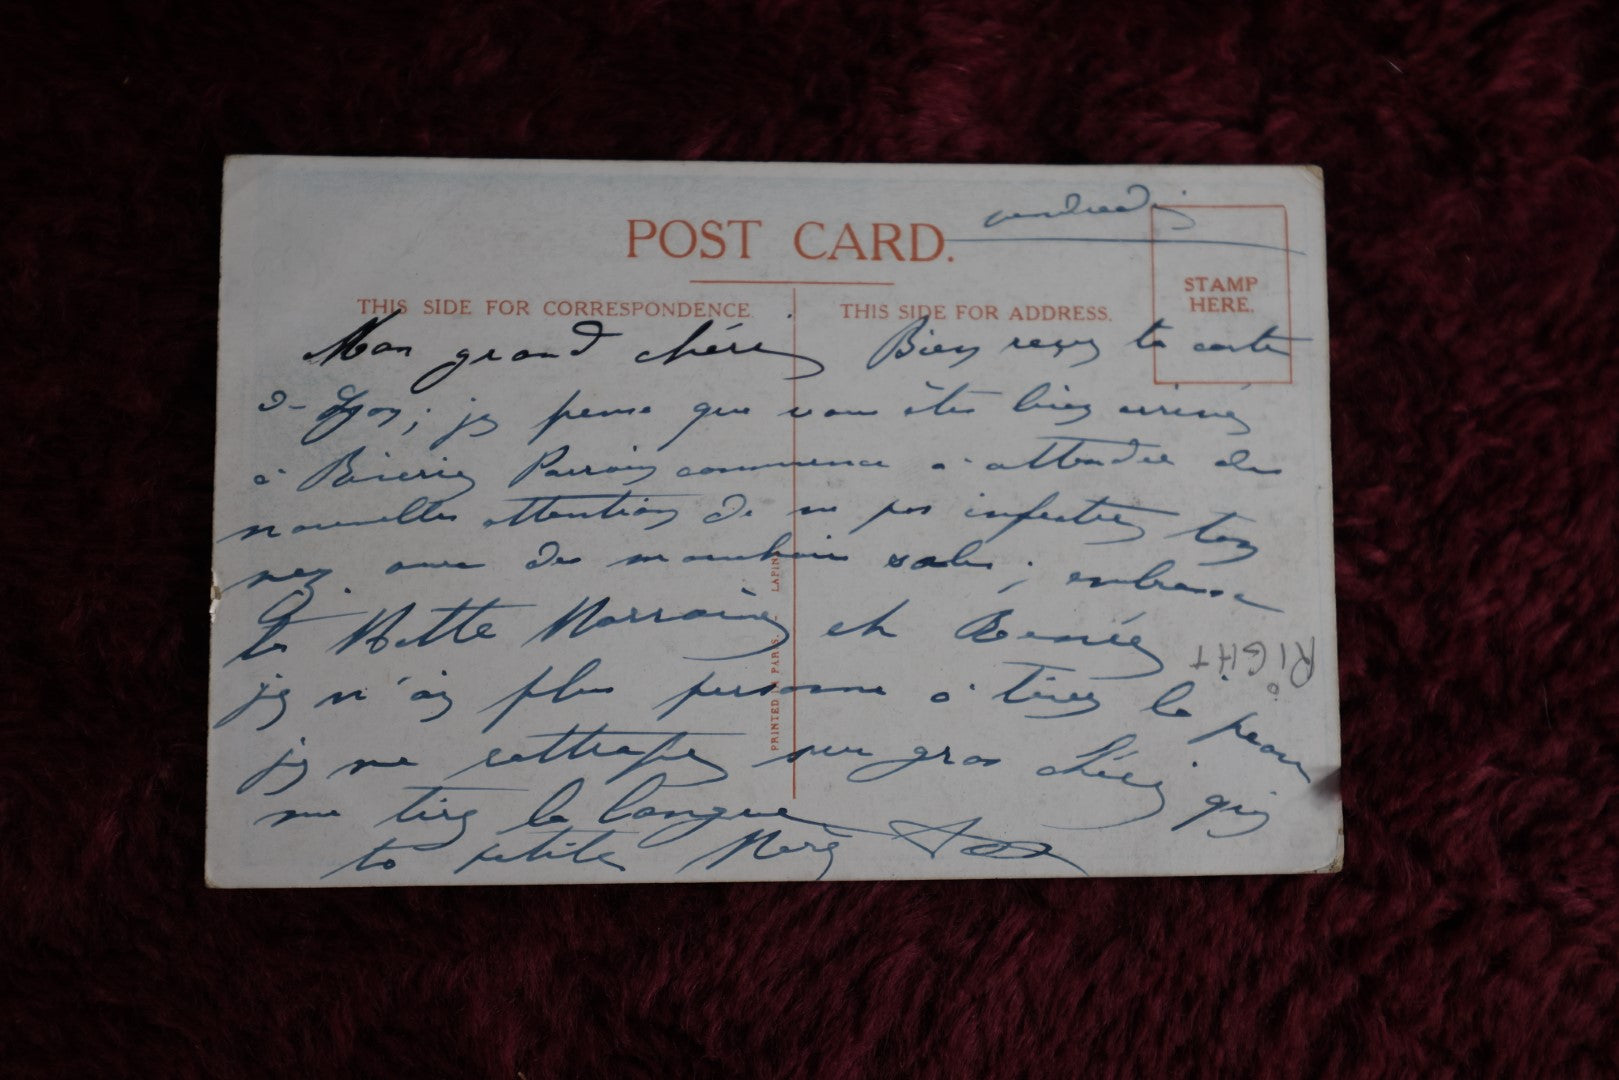 vendredi
POST CARD.
STAMP HERE.
THIS SIDE FOR CORRESPONDENCE.
THIS SIDE FOR ADDRESS.
Mon grand chéri Bien reçu ta carte
de Lyon; je pense que vous êtes bien arrivés
à Parrain commence à attendre des
nouvelles attention de ne pas infecter ton
nez avec des mouchoirs sales; embrasse
ta Marraine et Renée
je n'ai plus personne à tirer la peau
je me rattrape sur gros chéri qui
me tire la langue
ta petite Mère
PRINTED IN PARIS. - LAPINA
RIGHT